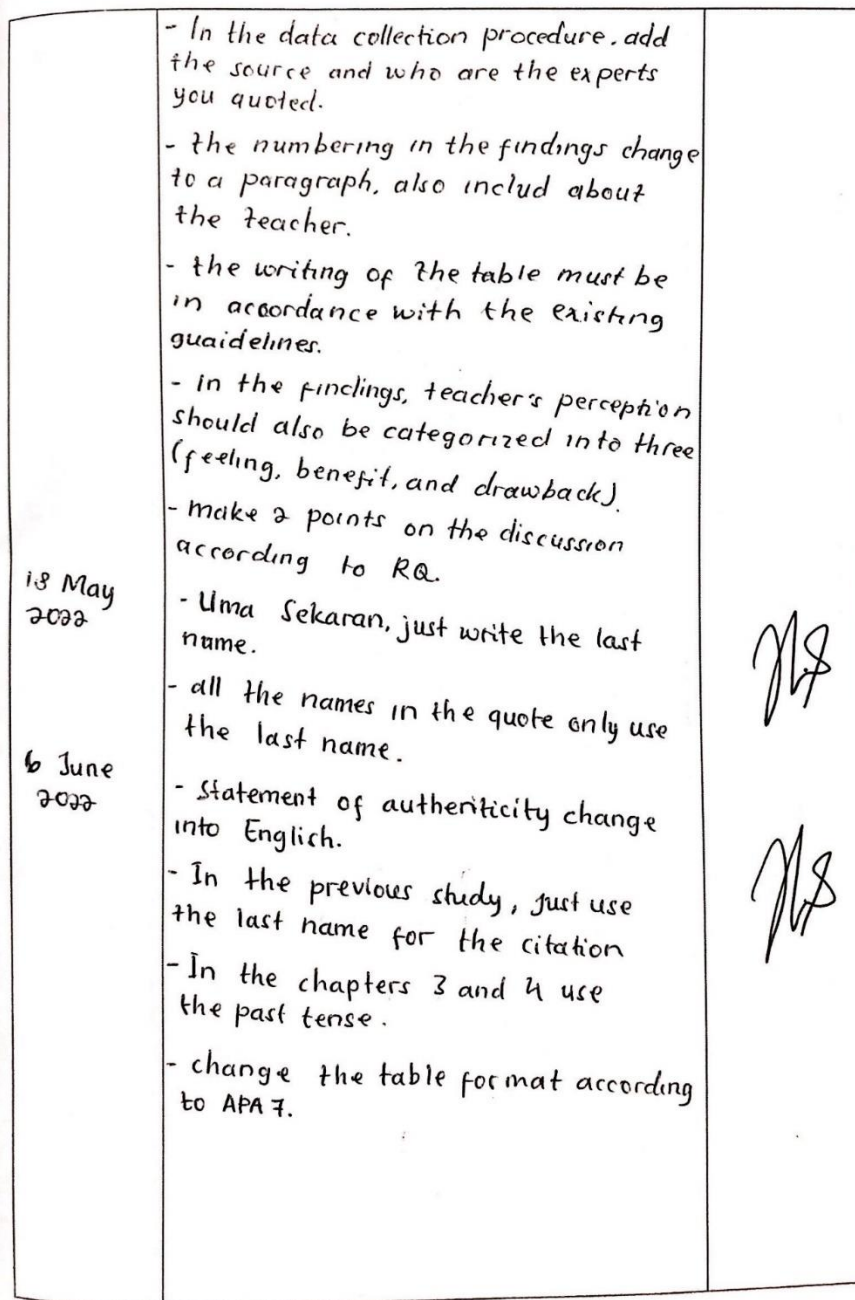 - In the data collection procedure. add
the source and who are the experts
you quoted.
- the numbering in the findings change
to a paragraph, also includ about
the teacher.
- the writing of the table must be
in accordance with the existing
guaidelines.
- in the findings, teacher's perception
should also be categorized into three
(feeling, benefit, and drawback).
- make 2 points on the discussion
according to RQ.
18 May
2022
- Uma Sekaran, just write the last
name.
- all the names in the quote only use
the last name.
6 June
2022
- Statement of authenticity change
into Englich.
- In the previous study, just use
the last name for the citation
- In the chapters 3 and 4 use
the past tense.
- change the table format according
to APA 7.